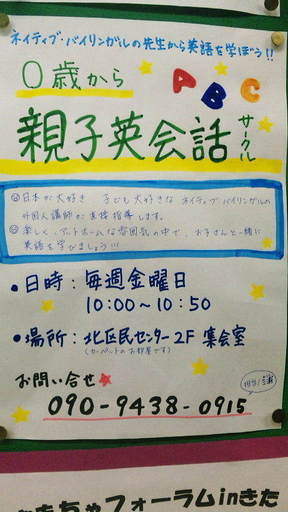 ネイティブ・バイリンガルの先生から英語を学ぼう!!
0歳から
ABC
親子英会話サークル
◎日本が大好き 子ども大好きな ネイティブ・バイリンガルの
外国人講師が直接指導します。
◎楽しく、アットホームな雰囲気の中で、お子さんと一緒に
英語を学びましょう!!!
・日時：毎週金曜日
10:00〜10:50
・場所：北区民センター2F 集会室
(カーペットのお部屋です)
お問い合せ
担当/
090-9438-0915
フォーラムinきた